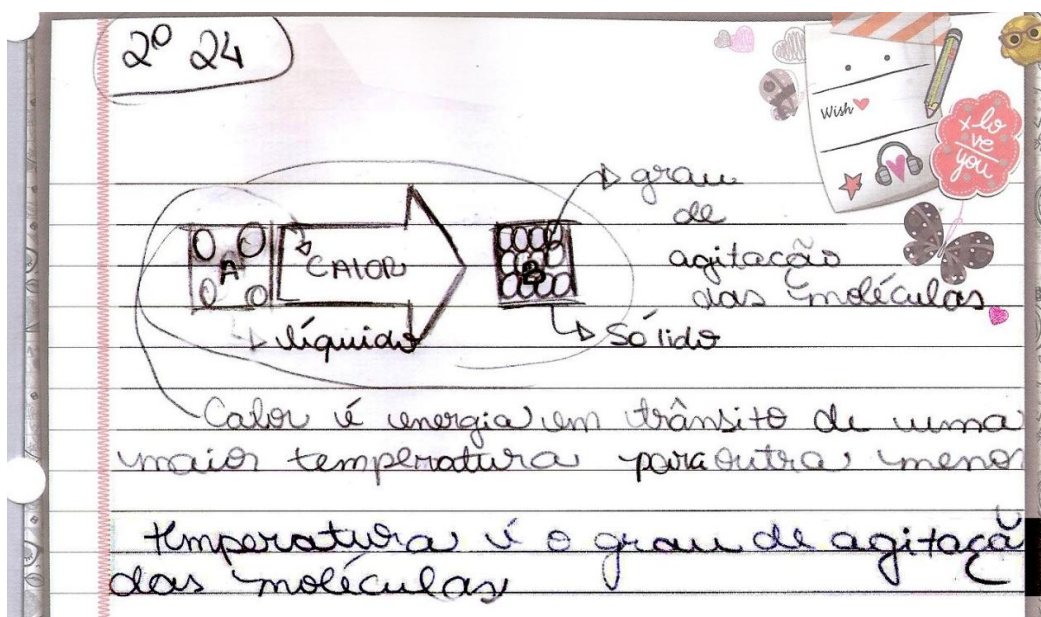 2º 24
Wish
x lo
ve
you
grau
de
agitação
das moléculas
A
CALOR
B
líquido
Sólido
Calor é energia em trânsito de uma
maior temperatura para outra menor
temperatura é o grau de agitaçã
das moléculas